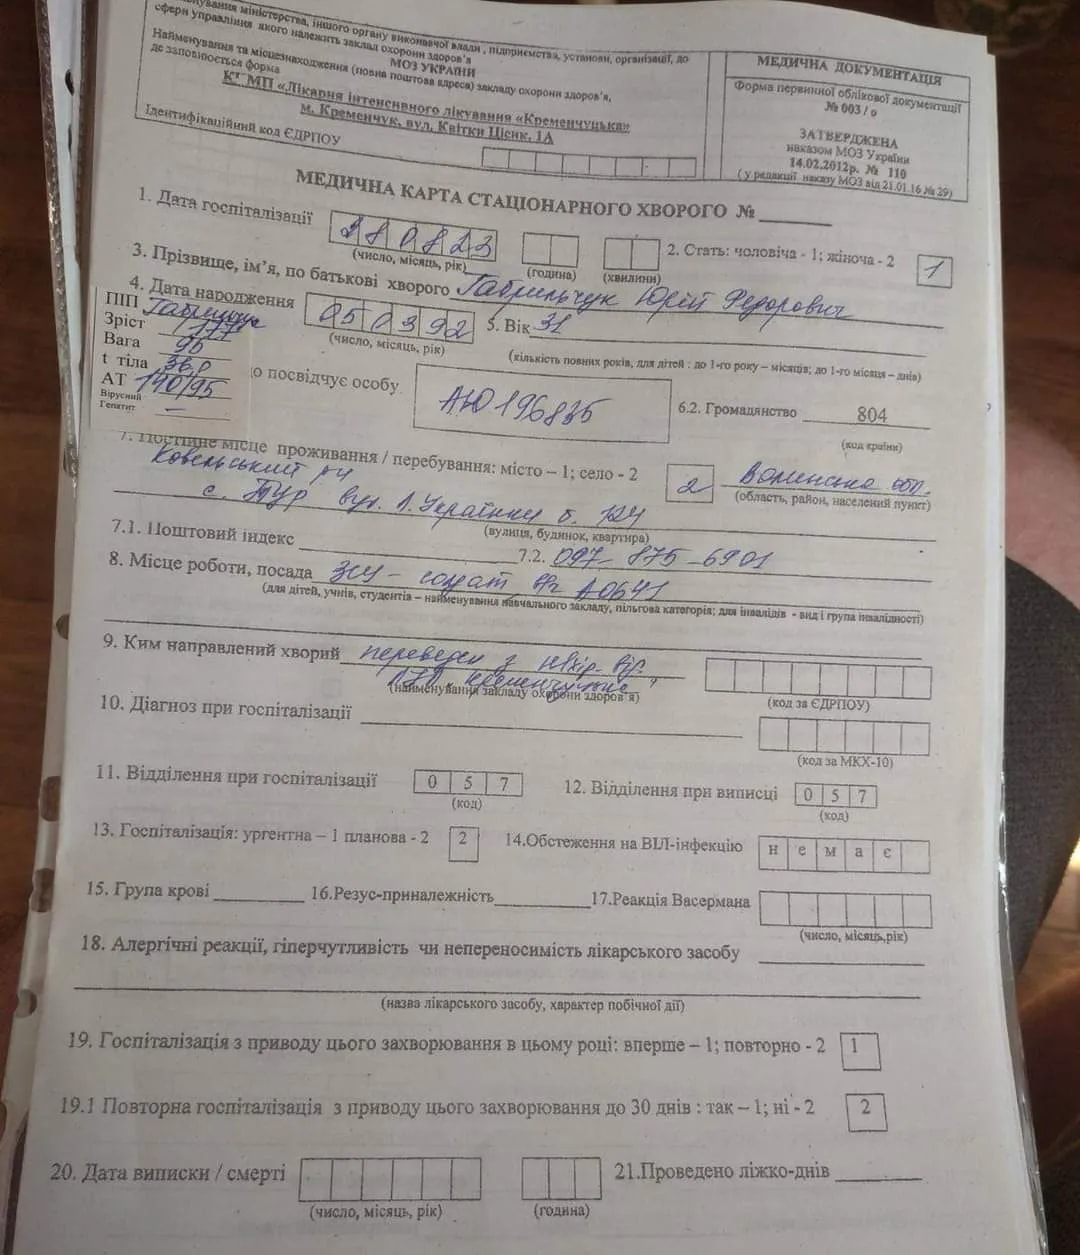 нування міністерства, іншого органу виконавчої влади , підприємства, установи, організації, до
сфери управління якого належить заклад охорони здоров'я
МОЗ УКРАЇНИ
Найменування та місцезнаходження (повна поштова адреса) закладу охорони здоров'я,
де заповнюється форма
МП «Лікарня інтенсивного лікування «Кременчуцька»
м. Кременчук, вул. Квітки Цісик, 1А
Ідентифікаційний код ЄДРПОУ
МЕДИЧНА ДОКУМЕНТАЦІЯ
Форма первинної облікової документації
№ 003 / о
ЗАТВЕРДЖЕНА
наказом МОЗ України
14.02.2012р. № 110
( у редакції наказу МОЗ від 21.01.16 № 29)
МЕДИЧНА КАРТА СТАЦІОНАРНОГО ХВОРОГО №
1. Дата госпіталізації 280823
(число, місяць, рік) (година) (хвилини)
2. Стать: чоловіча - 1; жіноча - 2 1
3. Прізвище, ім'я, по батькові хворого Гаврильчук Юрій Федорович
4. Дата народження 050392 5. Вік 31
(число, місяць, рік) (кількість повних років, для дітей : до 1-го року – місяців; до 1-го місяця – днів)
ПІП Гаврильчук
Зріст 177
Вага 96
t тіла
АТ 140/95
Вірусний
Гепатит –
о посвідчує особу АЮ196835 6.2. Громадянство 804
(код країни)
7. Постійне місце проживання / перебування: місто – 1; село - 2 2 Волинська обл.
(область, район, населений пункт)
Ковельський
с. Тур вул. Л. Українки б. 124
(вулиця, будинок, квартира)
7.1. Поштовий індекс 7.2. 097-875-6901
8. Місце роботи, посада ЗСУ – солдат в/ч А0641
(для дітей, учнів, студентів – найменування навчального закладу, пільгова категорія; для інвалідів - вид і група інвалідності)
9. Ким направлений хворий переведен з
(найменування закладу охорони здоров'я) (код за ЄДРПОУ)
10. Діагноз при госпіталізації
(код за МКХ-10)
11. Відділення при госпіталізації 0 5 7 12. Відділення при виписці 0 5 7
(код) (код)
13. Госпіталізація: ургентна – 1 планова - 2 2 14.Обстеження на ВІЛ-інфекцію н е м а є
15. Група крові 16.Резус-приналежність 17.Реакція Васермана
(число, місяць,рік)
18. Алергічні реакції, гіперчутливість чи непереносимість лікарського засобу
(назва лікарського засобу, характер побічної дії)
19. Госпіталізація з приводу цього захворювання в цьому році: вперше – 1; повторно - 2 1
19.1 Повторна госпіталізація з приводу цього захворювання до 30 днів : так – 1; ні - 2 2
20. Дата виписки / смерті 21.Проведено ліжко-днів
(число, місяць, рік) (година)